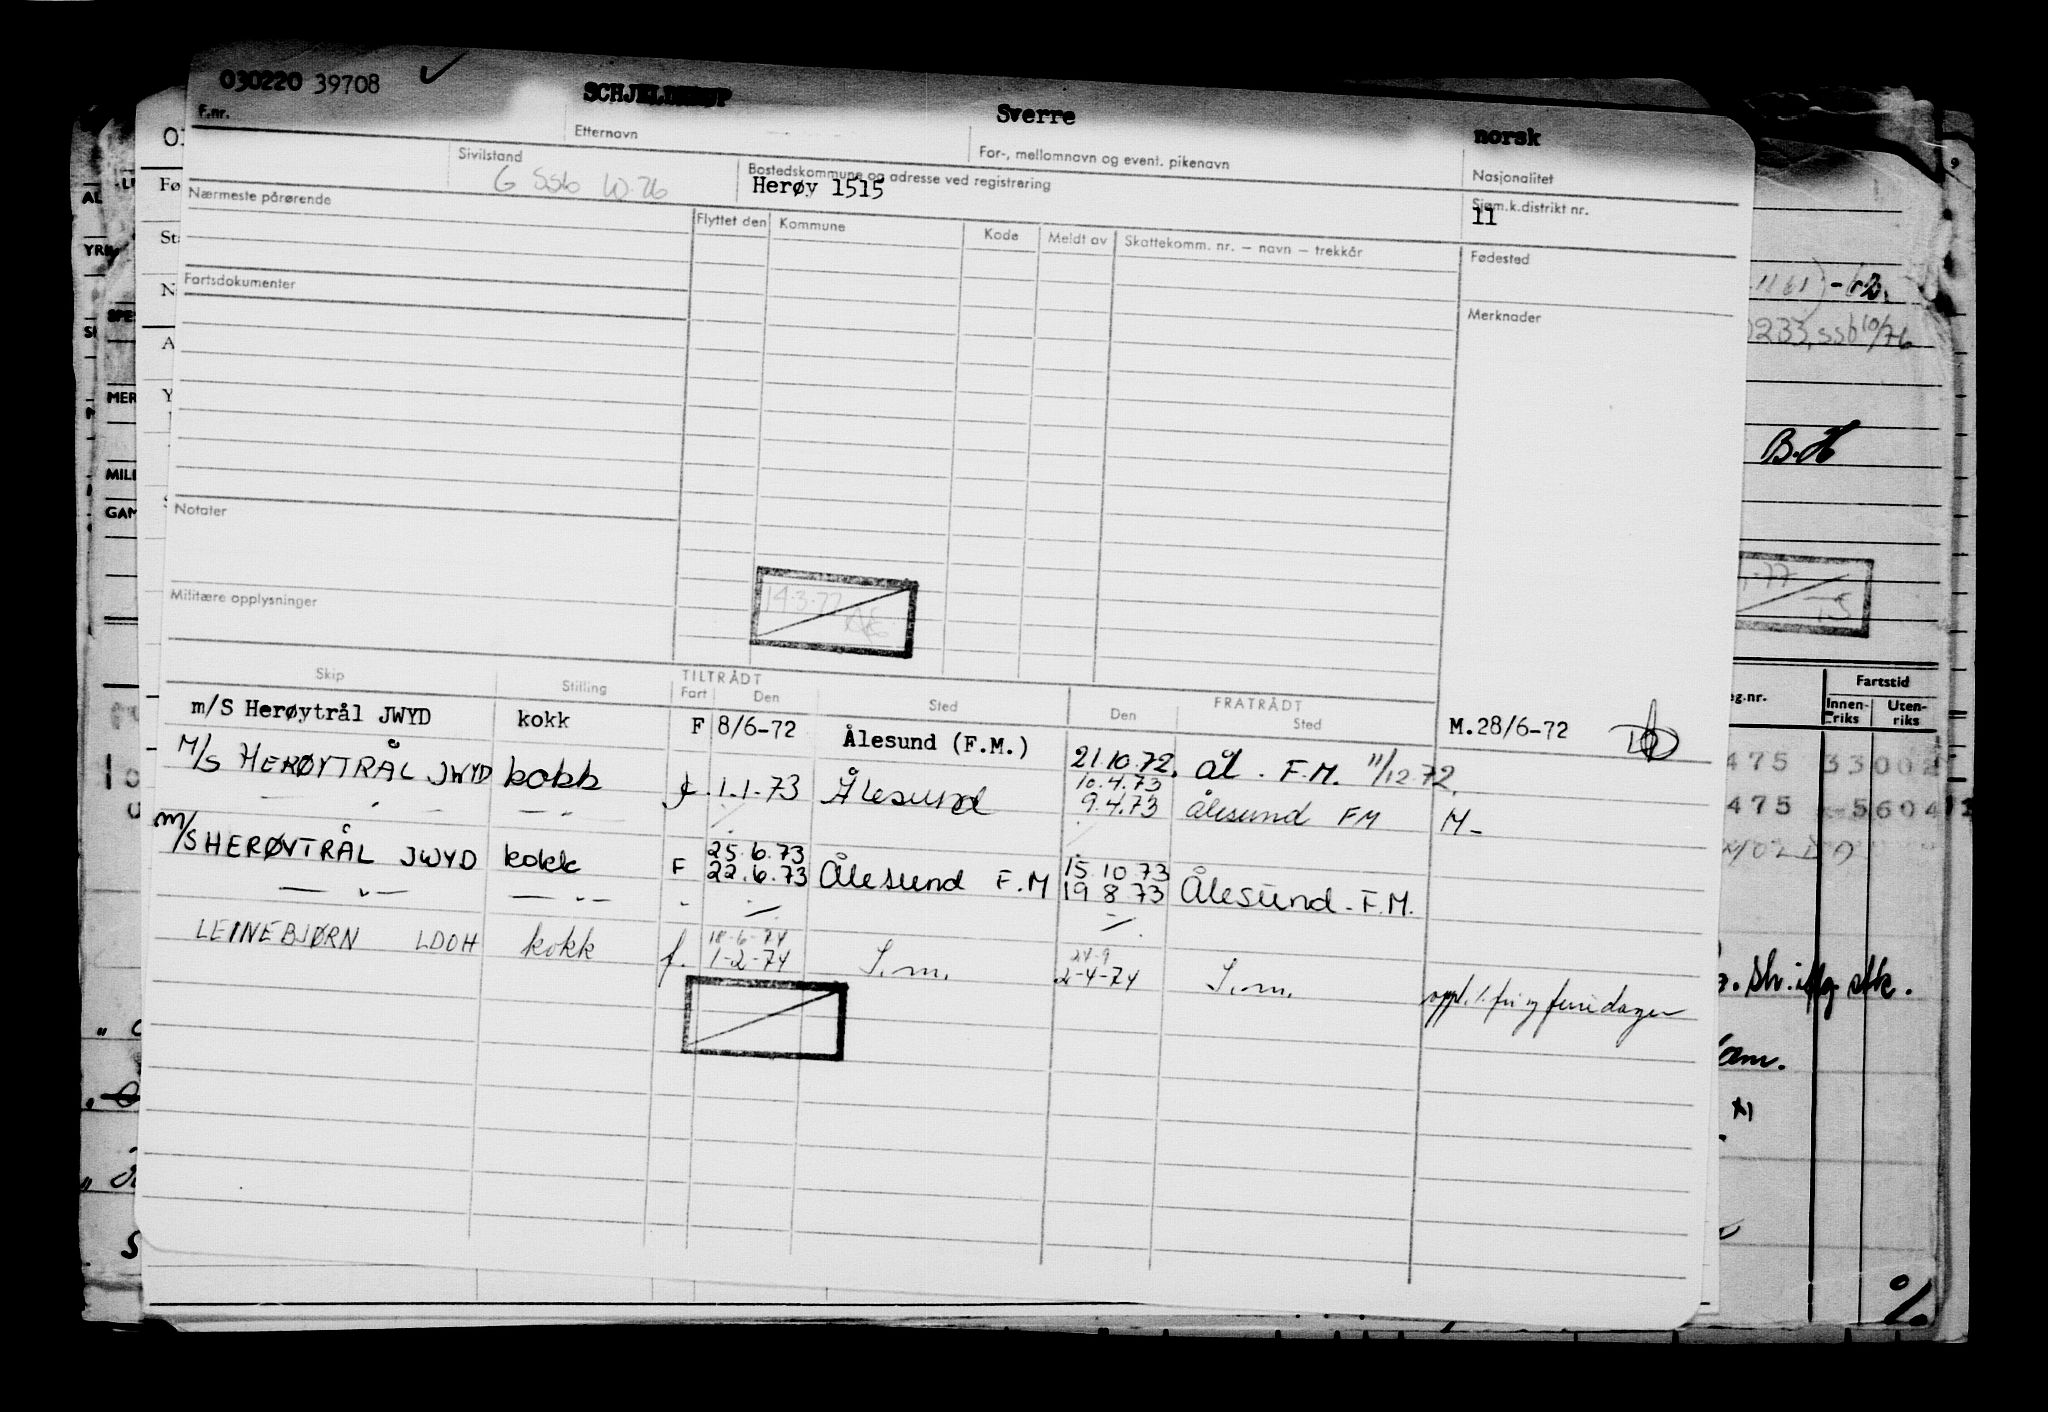 030220 39708 SCHJELDERUP Sverre norsk
F.nr. Etternavn For-, mellomnavn og event. pikenavn Nasjonalitet
Sivilstand Bostedskommune og adresse ved registrering Sjøm.k.distrikt nr.
G SSB 10.76 Herøy 1515 11
Nærmeste pårørende Flyttet den Kommune Kode Meldt av Skattekomm. nr. – navn – trekkår Fødested
Fartsdokumenter Merknader
Notater
14.3.77
Militære opplysninger
Skip Stilling TILTRÅDT FRATRÅDT
Fart Den Sted Den Sted
m/S Herøytrål JWYD kokk F 8/6-72 Ålesund (F.M.) 21.10.72. Ål. F.M. 11/12.72. M.28/6-72
M/S HERØYTRÅL JWYD kokk f. 1.1-73 Ålesund 10.4.73
9.4.73 Ålesund FM M-
— " — — " —
m/S HERØYTRÅL JWYD kokk F 25.6.73
22.6.73 Ålesund F.M 15.10.73
19 8.73 Ålesund. F.M.
— " — — " — -
LEINEBJØRN LDOH kokk f. 18-6-74
1-2-74 S.m. 24-9
2-4-74 S.m. oppl. l. fri og feriedager
AL
YRK
SPES
MER
MILI
GAM
1161) - 62.
0233, ssb 10/76
B.H
77
TS
Fartstid
eg.nr. Innen-riks Uten-riks
475 33002
475 5604
%